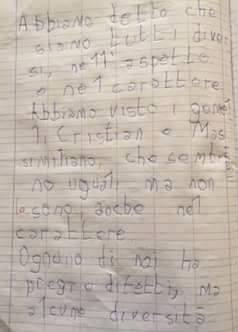 Abbiamo detto che
siamo tutti diver
si, nell'aspetto
e nel carattere.
Abbiamo visto i gemel
li Cristian e Mas
similiano, che sembra
no uguali, ma non
lo sono, anche nel
carattere.
Ognuno di noi ha
pregi e difetti, ma
alcune diversità